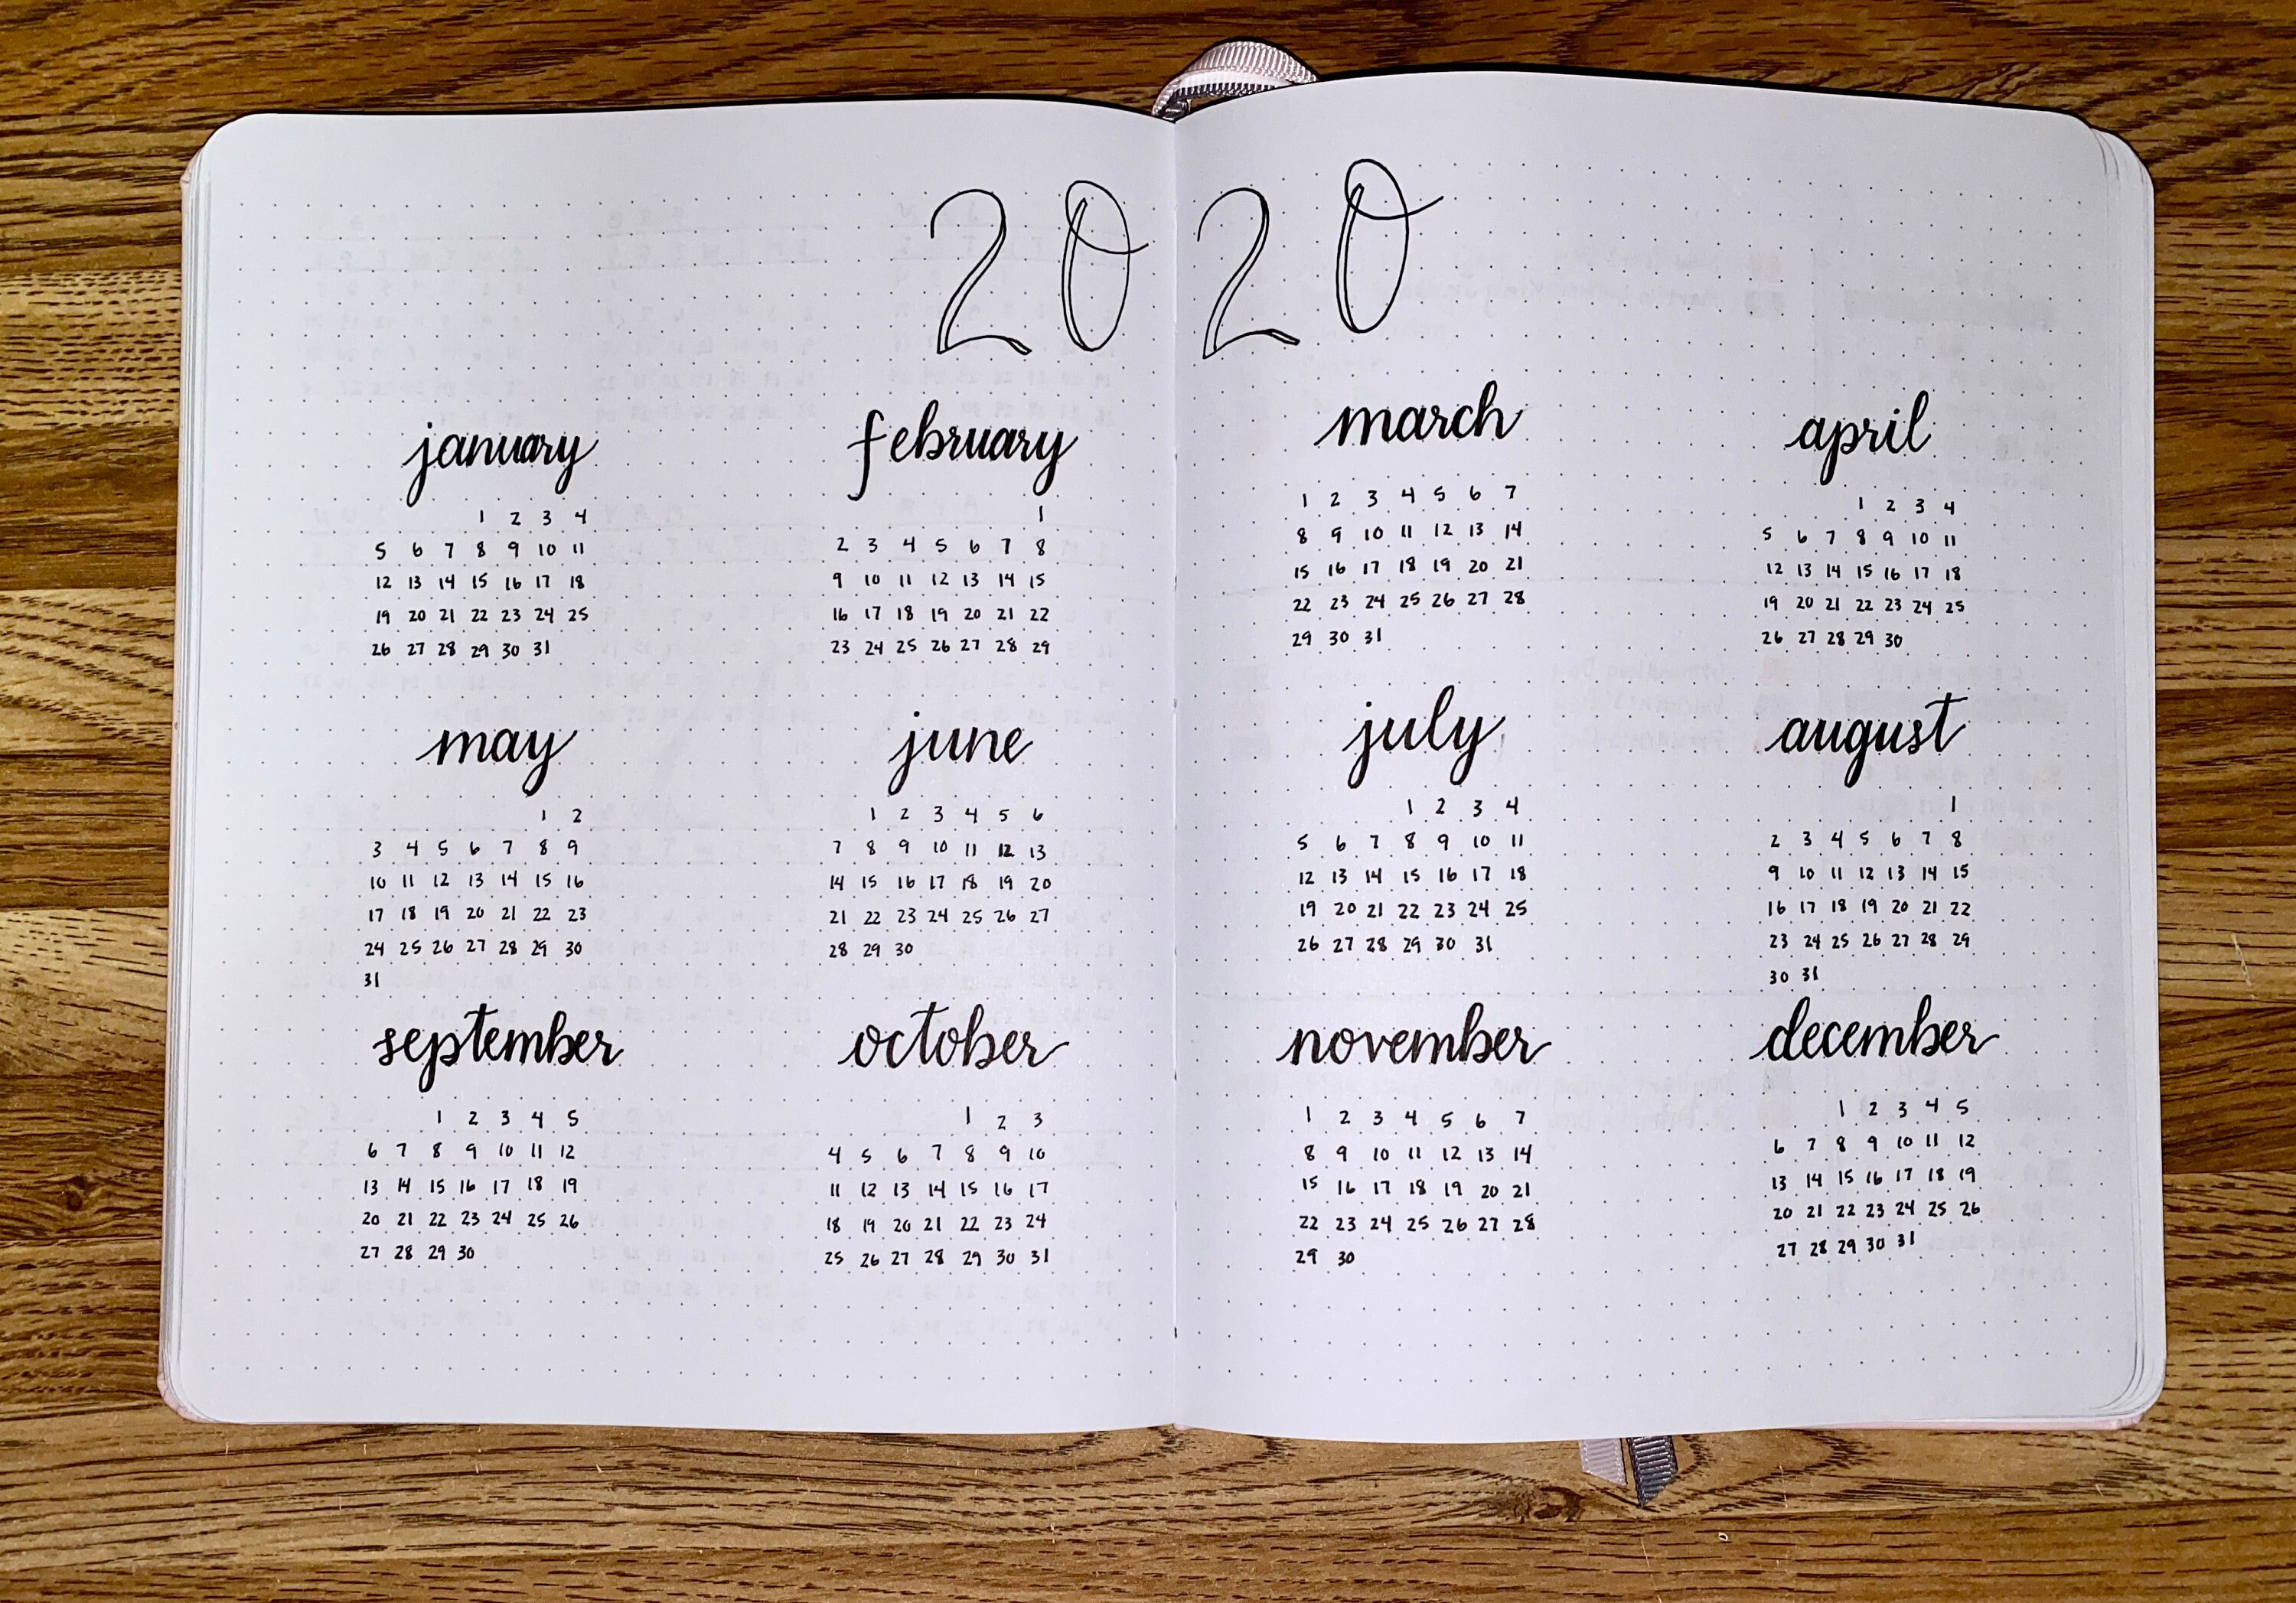 2020
january
1 2 3 4
5 6 7 8 9 10 11
12 13 14 15 16 17 18
19 20 21 22 23 24 25
26 27 28 29 30 31
february
1
2 3 4 5 6 7 8
9 10 11 12 13 14 15
16 17 18 19 20 21 22
23 24 25 26 27 28 29
march
1 2 3 4 5 6 7
8 9 10 11 12 13 14
15 16 17 18 19 20 21
22 23 24 25 26 27 28
29 30 31
april
1 2 3 4
5 6 7 8 9 10 11
12 13 14 15 16 17 18
19 20 21 22 23 24 25
26 27 28 29 30
may
1 2
3 4 5 6 7 8 9
10 11 12 13 14 15 16
17 18 19 20 21 22 23
24 25 26 27 28 29 30
31
june
1 2 3 4 5 6
7 8 9 10 11 12 13
14 15 16 17 18 19 20
21 22 23 24 25 26 27
28 29 30
july
1 2 3 4
5 6 7 8 9 10 11
12 13 14 15 16 17 18
19 20 21 22 23 24 25
26 27 28 29 30 31
august
1
2 3 4 5 6 7 8
9 10 11 12 13 14 15
16 17 18 19 20 21 22
23 24 25 26 27 28 29
30 31
september
1 2 3 4 5
6 7 8 9 10 11 12
13 14 15 16 17 18 19
20 21 22 23 24 25 26
27 28 29 30
october
1 2 3
4 5 6 7 8 9 10
11 12 13 14 15 16 17
18 19 20 21 22 23 24
25 26 27 28 29 30 31
november
1 2 3 4 5 6 7
8 9 10 11 12 13 14
15 16 17 18 19 20 21
22 23 24 25 26 27 28
29 30
december
1 2 3 4 5
6 7 8 9 10 11 12
13 14 15 16 17 18 19
20 21 22 23 24 25 26
27 28 29 30 31